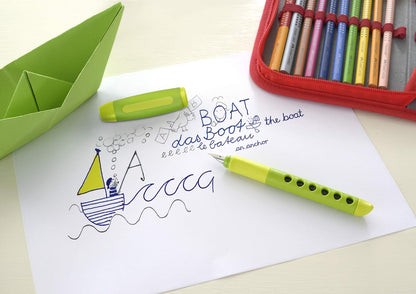 BOAT
das Boot the boat
eeeee le bateau
an anchor
A